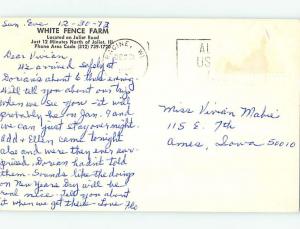 Sun. Eve 12-30-73
WHITE FENCE FARM
Located on Joliet Road
Just 12 Minutes North of Joliet, Ill.
Phone Area Code (312) 739-17
Dear Vivian,
We arrived safely at
Dorian's about 6 this evening.
Will tell you about our trip
when we see you - it will
probably be on Jan. 9 and
we can just stay overnight.
Add & Ellen came tonight
also and were they ever sur-
prised. Dorian hadn't told
them. Sounds like the doings
on New Years Day will be
real nice. Will tell you about
it when we get there - Love Flo
RACINE, WI
AI
US
Miss Vivian Mabie
115 E. 7th
Ames, Iowa 50010